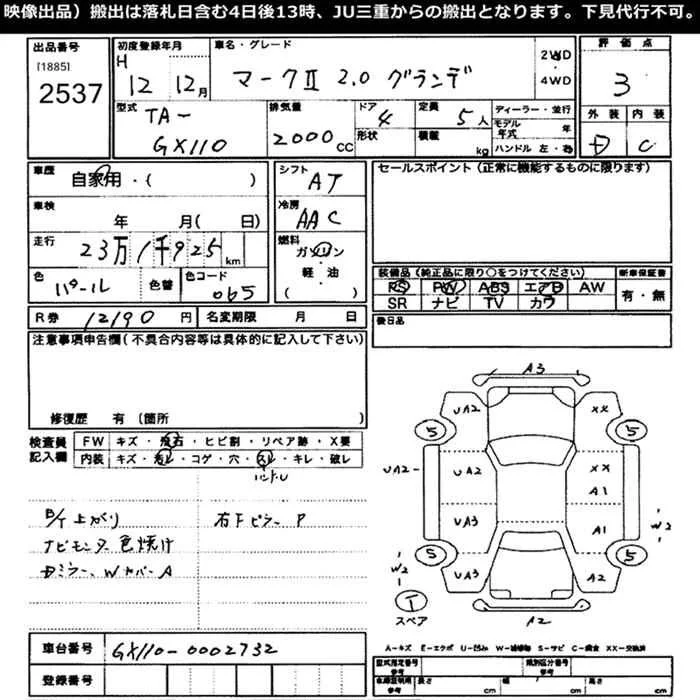 映像出品）搬出は落札日含む4日後13時、JU三重からの搬出となります。下見代行不可。
出品番号
[1885]
2537
初度登録年月
H 12 12月
車名・グレード
マークⅡ 2.0 グランデ
2WD
・
4WD
評価点
3
型式
TA-
GX110
排気量
2000CC
ドア
4
形状
定員
5人
積載
kg
ディーラー・並行
モデル年式 年
ハンドル 左・右
外装
内装
D
C
車歴
自家用・( )
シフト
AT
セールスポイント（正常に機能するものに限ります）
車検
年 月( 日)
冷房
AAC
走行
23万1千925km
燃料
ガソリン
軽・油
( )
色
パール
色替
色コード
065
装備品（純正品に限り○をつけてください）
新車保証書
PS PW ABS エアB AW
SR ナビ TV カワ
有・無
R券 12190円
名変期限 月 日
後日品
注意事項申告欄(不具合内容等は具体的に記入して下さい)
修復歴 有(箇所 )
検査員記入欄
FW キズ・飛石・ヒビ割・リペア跡・X要
内装 キズ・汚レ・コゲ・穴・スレ・キレ・破レ
ハンドル
B/T上がり
ナビモニター色焼け
Dミラー、Wカバー A
右Fピラー P
A3
UA2
XX
5
5
UA2
UA2
XX
A1
UA3
A1
W2
5
5
W2
UA3
A2
T
スペア
A2
A-キズ E-エクボ U-凹み W-補修跡 S-サビ C-腐食 XX-交換済
車台番号
GX110-0002732
登録番号
型式指定番号
参考
類別区分番号
参考
車庫証明用
参考
長さ cm
幅 cm
高さ cm